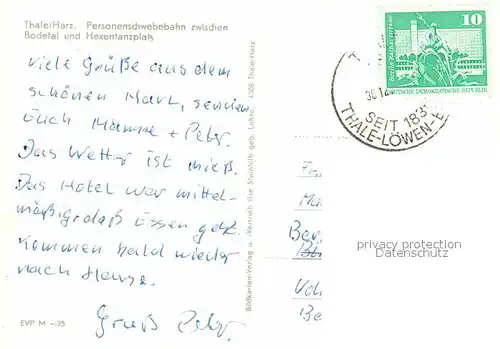 Thale/Harz. Personenschwebebahn zwischen
Bodetal und Hexentanzplatz
viele Grüße aus dem
schönen Harz, senden
Euch Mamme + Peter.
Das Wetter ist mieß.
Das Hotel war mittel-
mäßig Essen geht.
Kommen bald wieder
nach Hause.
Gruß Peter
EVP M -.25
Bildkarten-Verlag u. -Vertrieb Ilse Steinhilb geb. 4308 Thale/Harz
10
DEUTSCHE DEMOKRATISCHE REPUBLIK
30.12
SEIT 183
THALE-LÖWEN-E
Ber
Be
privacy protection
Datenschutz